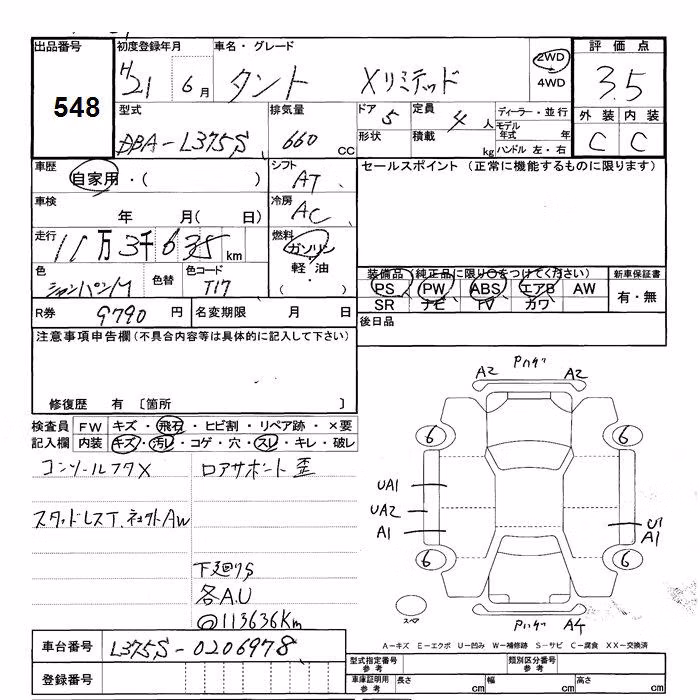 出品番号 初度登録年月 車名・グレード 評価点
548
H21 6月 タント Xリミテッド 2WD 4WD 3.5
型式 排気量 ドア 5 定員 4人 ディーラー・並行 外装 内装
DBA-L375S 660cc 形状 積載 kg モデル年式 年 ハンドル 左・右 C C
車歴 自家用・( ) シフト AT セールスポイント (正常に機能するものに限ります)
車検 年 月( 日) 冷房 AC
走行 11万3千635km 燃料 ガソリン 軽油 ( ・ )
色 シャンパンM 色替 色コード T17
装備品(純正品に限り○をつけてください) 新車保証書
PS PW ABS エアB AW 有・無
SR ナビ TV カワ
R券 9790円 名変期限 月 日 後日品
注意事項申告欄(不具合内容等は具体的に記入して下さい)
修復歴 有 [箇所 ]
検査員 FW キズ・飛石・ヒビ割・リペア跡・×要
記入欄 内装 キズ・汚レ・コゲ・穴・スレ・キレ・破レ
コンソールフタX ロアサポート歪
スタッドレスT. 社外AW
下廻りS
各A.U
@113636Km
Pハゲ
A2 A2
6 6
UA1
UA2
A1
U1
A1
6 6
スペア
Pハゲ A4
A-キズ E-エクボ U-凹み W-補修跡 S-サビ C-腐食 XX-交換済
車台番号 L375S-0206978
登録番号
型式指定番号 参考 類別区分番号 参考
車庫証明用 参考 長さ cm 幅 cm 高さ cm